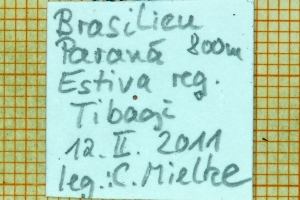 Brasilien
Paraná 800m
Estiva reg.
Tibagi
12. II. 2011
leg.: C. Mielke